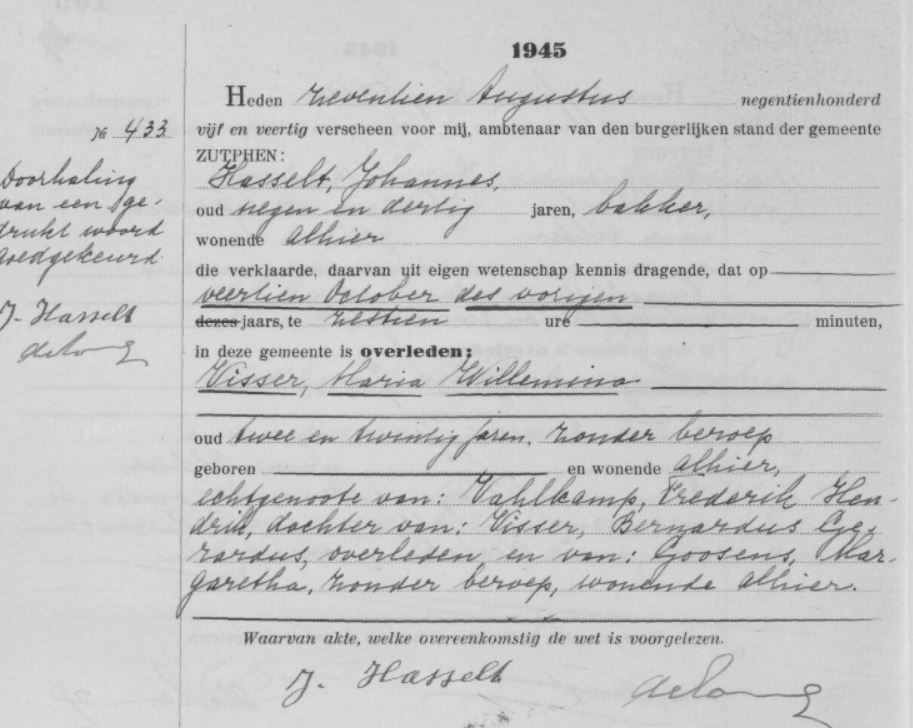 1945
Heden zeventien Augustus negentienhonderd
№ 433
vijf en veertig verscheen voor mij, ambtenaar van den burgerlijken stand der gemeente
ZUTPHEN:
Hasselt, Johannes,
oud negen en dertig jaren, bakker,
wonende alhier
die verklaarde, daarvan uit eigen wetenschap kennis dragende, dat op
veertien October des vorigen
dezes jaars, te zestien ure minuten,
in deze gemeente is overleden:
Visser, Maria Willemina
oud twee en twintig jaren, zonder beroep
geboren en wonende alhier,
echtgenoote van: Vahlkamp, Frederik Hen-
drik, dochter van: Visser, Bernardus Ge-
rardus, overleden en van: Goosens, Mar-
garetha, zonder beroep, wonende alhier.
Waarvan akte, welke overeenkomstig de wet is voorgelezen.
J. Hasselt
Doorhaling
van een ge-
drukt woord
goedgekeurd.
J. Hasselt